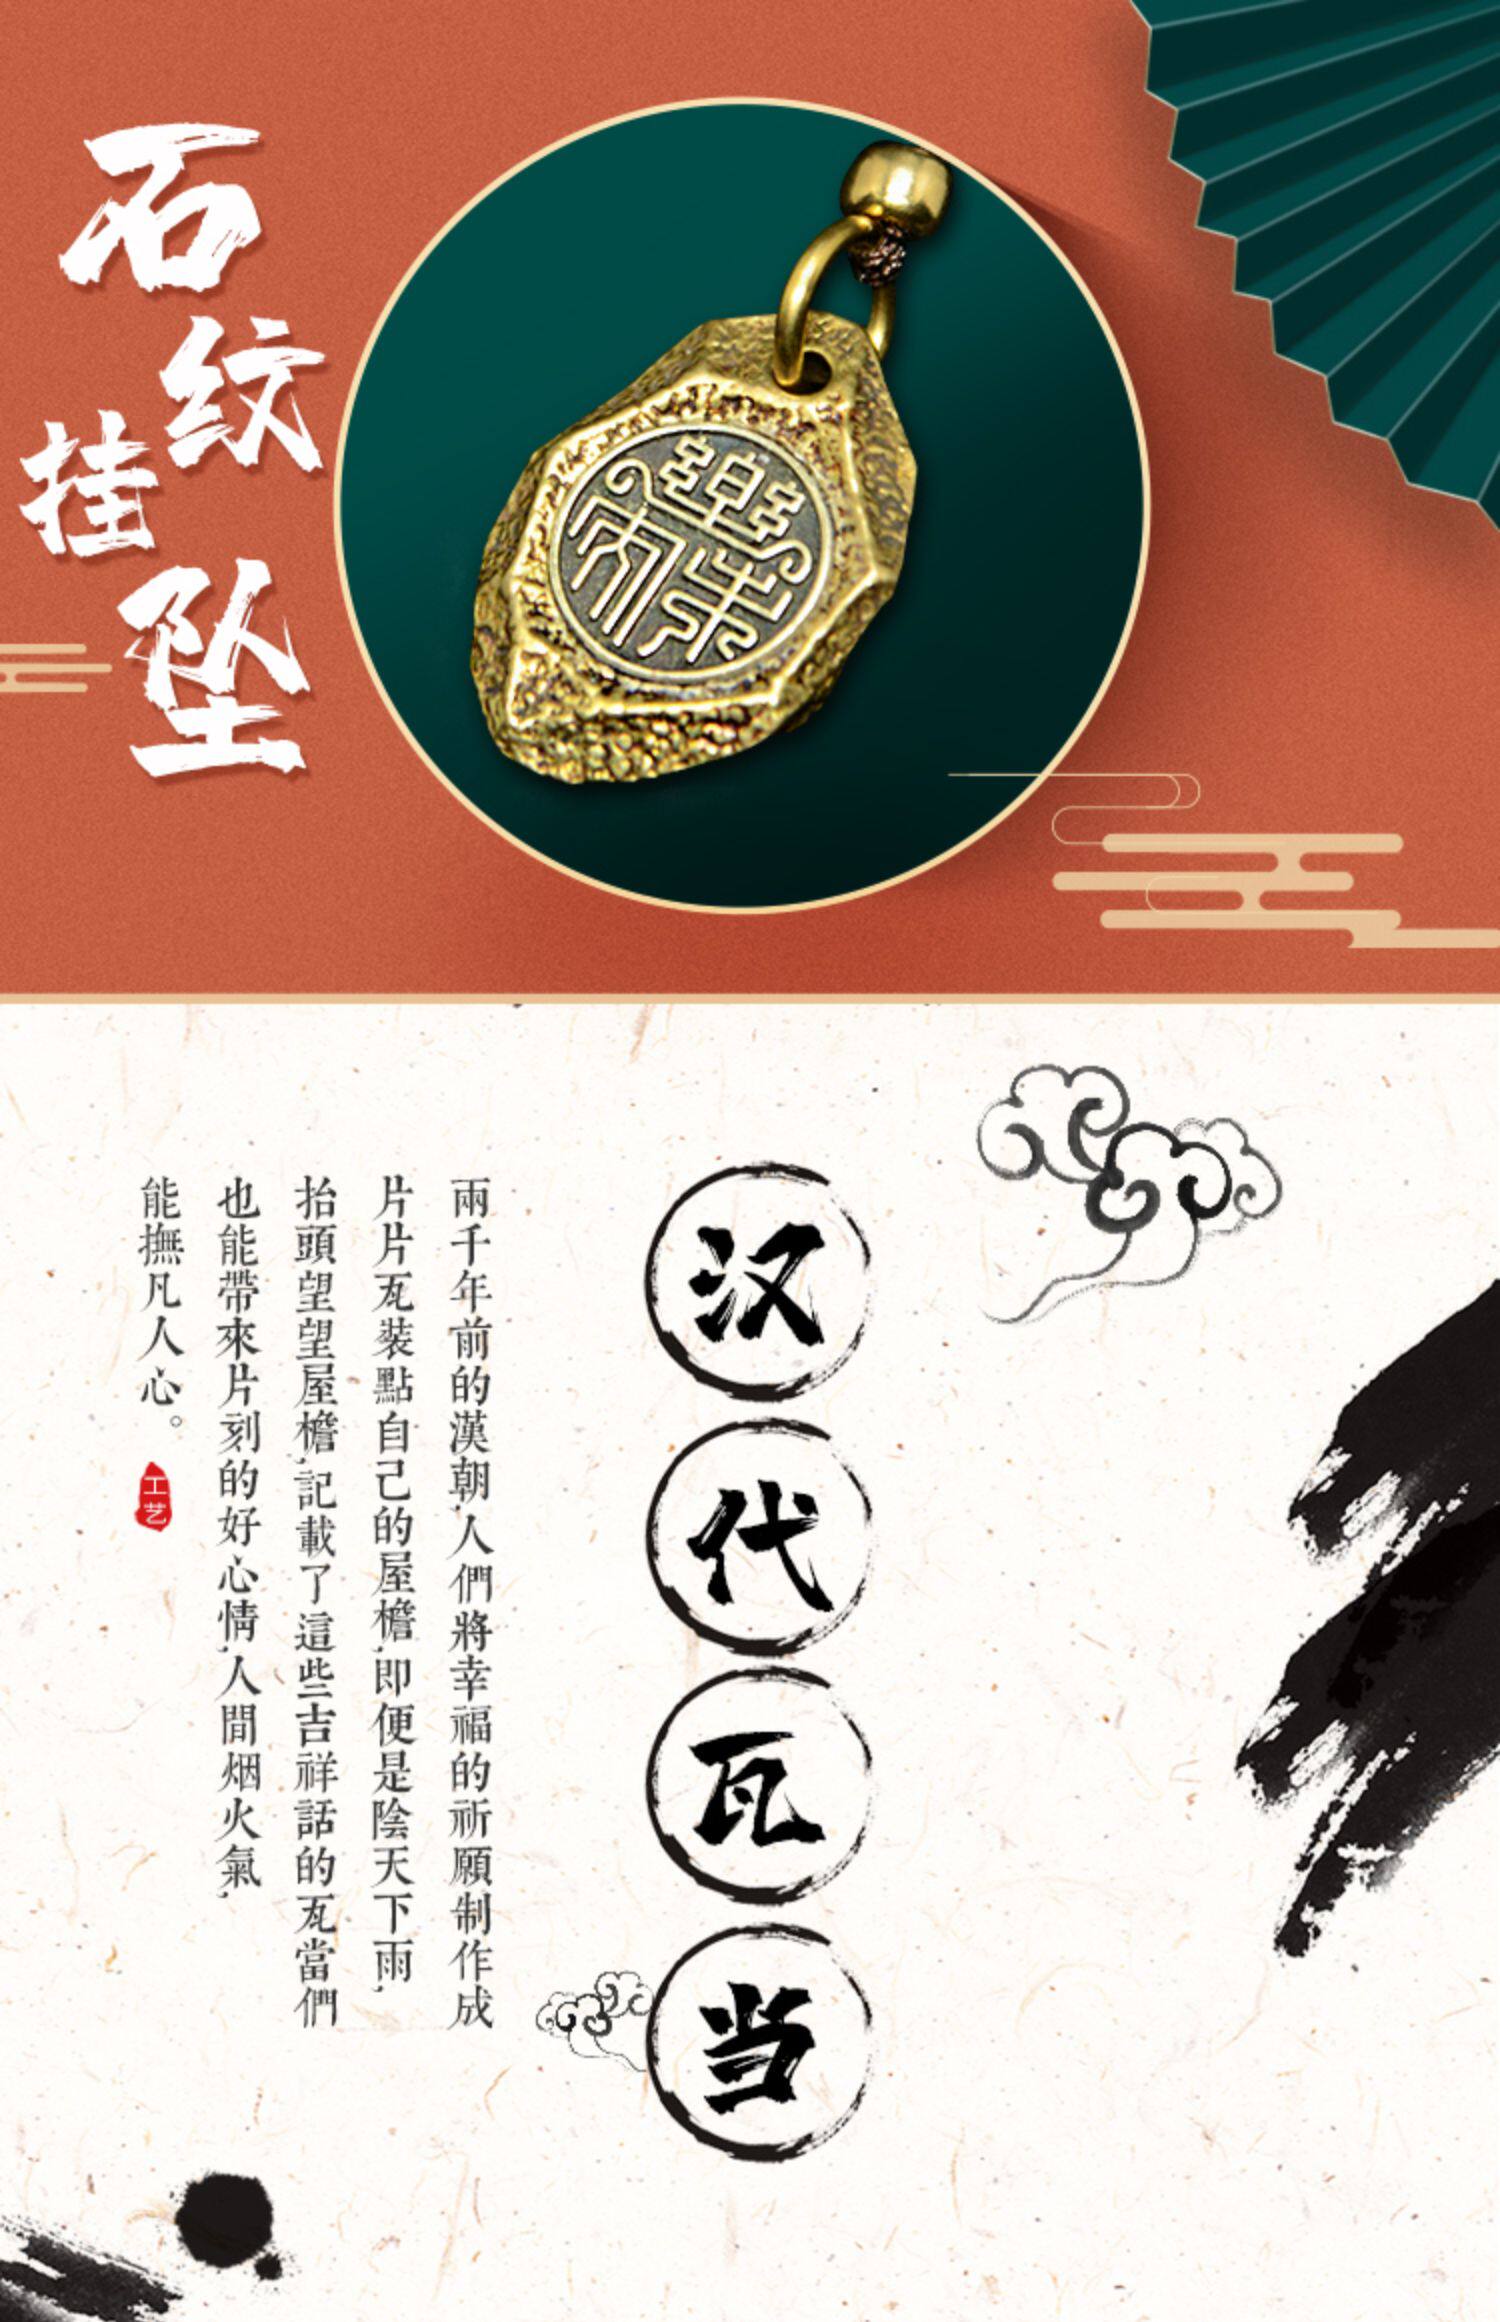 石纹挂坠
汉代瓦当
兩千年前的漢朝,人們將幸福的祈願制作成
片片瓦裝點自己的屋檐,即便是陰天下雨,
抬頭望望屋檐,記載了這些吉祥話的瓦當們
也能帶來片刻的好心情,人間烟火氣,
能撫凡人心。
工艺